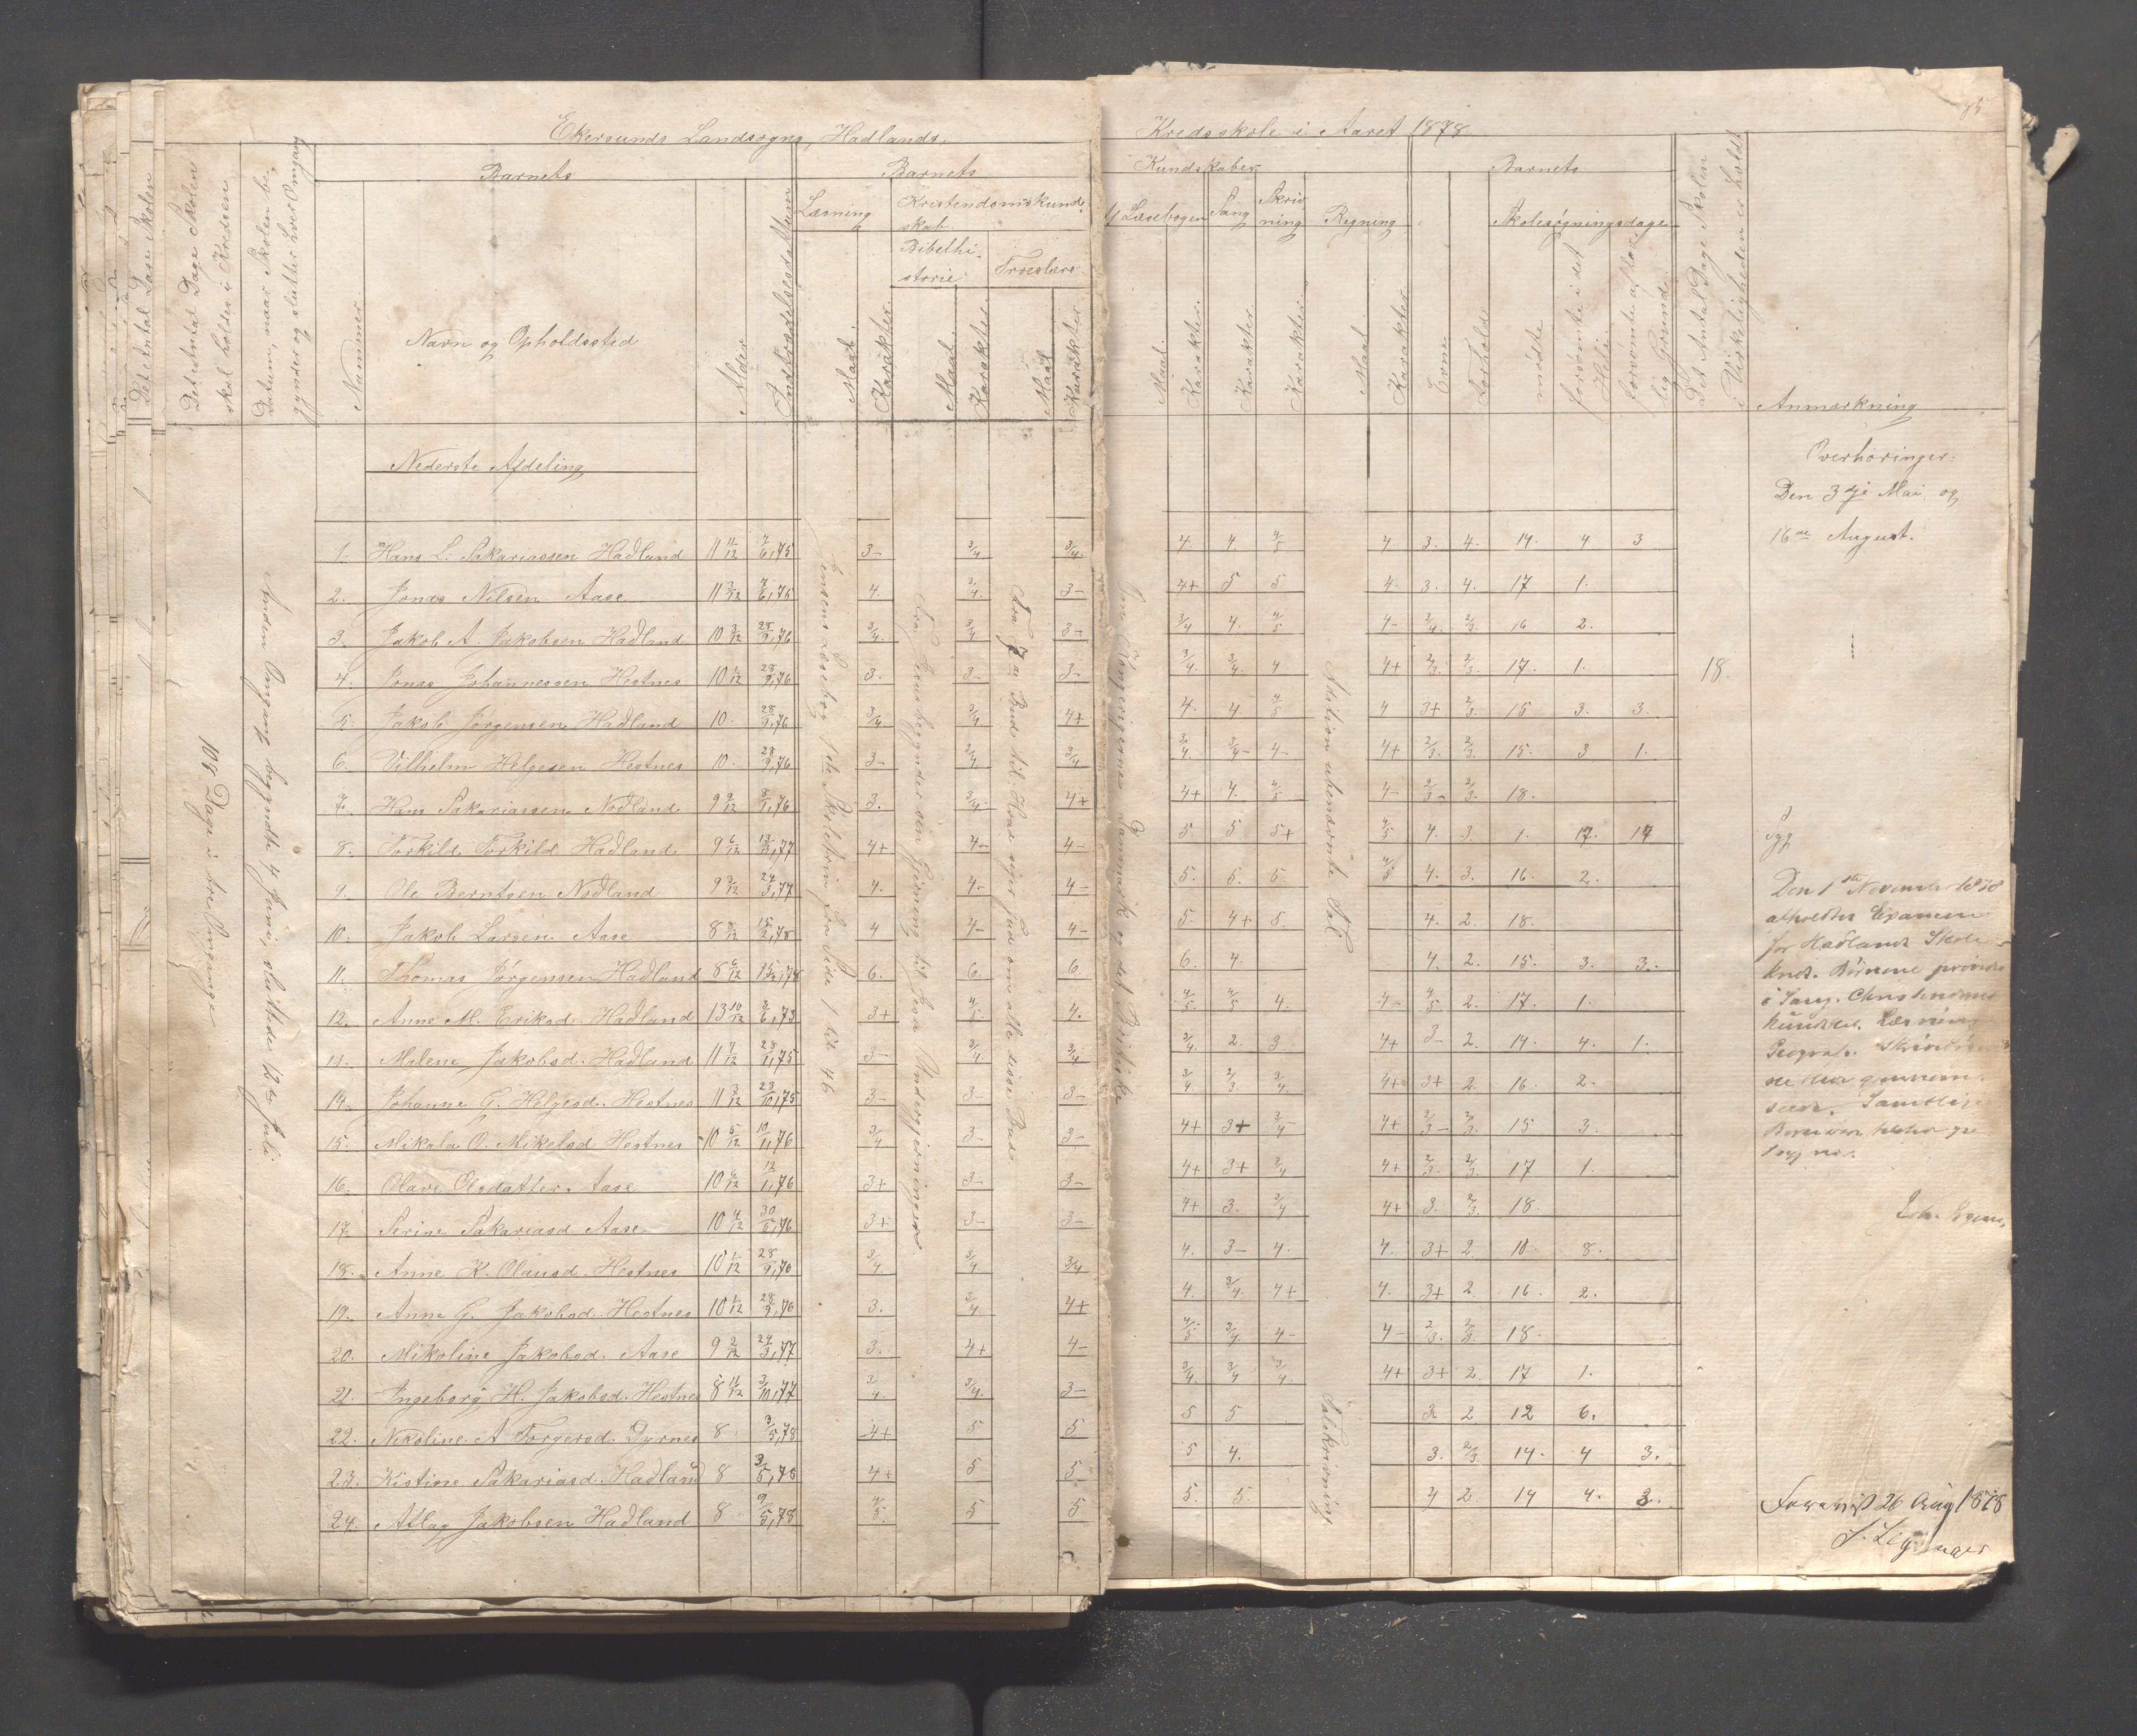 Ekersunds Landsogns, Hadlands, Kredsskole i Aaret 1878
Det Antal Dage Skolen
Det Antal Dage Skolen skal holdes i Kredsen
Datum, naar Skolen begynder og slutter hver Omgang
Nummer
Barnets
Navn og Opholdssted
Alder
Indtrædelsesdatum
Barnets
Læsning
Maal.
Karakter.
Kristendomskundskab.
Bibelhistorie
Maal.
Karakter.
Troeslære
Maal
Karakter
Kundskaber
i Læsebogen
Maal.
Karakter.
Sang
Karakter.
Skrivning
Karakter
Regning
Maal.
Karakter
Barnets
Evne
Forhold
Skolesøgningsdage
mødte
forsømte i det Hele.
forsømte af lovlig Grund.
Det Antal Dage Skolen i Virkeligheden er holdt
Anmærkning
Nederste Afdeling
108 Dage i tre Omgange
Anden Omgang begyndte 4 Juni, sluttede 12te Juli
Jensens Læsebog 1ste Skoletrin fra Side 1 til 46
Fra Jesus begynder sin Gjerning til Jesu Undergjerninger
Fra 7de Bud til: Hvad siger Gud om alle disse Bud
Addition ubenævnte Tal
Talskrivning
1. Hans L. Sakariassen Hadland 11 11/12 7/6,75 3- 3/4 3/4 4 4 4/5 4 3. 4. 14. 4 3
2. Jonas Nilsen Aase 11 3/12 7/6,76 4. 3/4. 3- 4+ 5 5 4. 3. 4. 17 1.
3. Jakob A. Jakobsen Hadland 10 3/12 28/9,76 3/4. 3/4 3- 3/4 4. 4/5 4- 3/4. 2/3. 16 2.
4. Jonas Johannessen Hestnes 10 1/12 28/9,76 3. 3- 3- 3/4. 3/4. 4 4+ 2/3 2/3. 17. 1.
5. Jakob Jørgensen Hadland 10. 28/9,76 3/4 3/4 4+ 4. 4. 4/5 4 3+ 2/3. 15 3. 3.
6. Vilhelm Helgesen Hestnes 10. 28/9,76 3- 3/4 3/4 3/4. 3/4- 4- 4+ 2/3. 2/3. 15. 3 1.
7. Hans Sakariassen Nodland. 9 9/12 8/1,76 3. 3/4. 4+ 4+ 4. 4/5 4- 2/3- 2/3. 18.
8. Torkild Torkilds Hadland 9 6/12 13/3,77 4+ 4- 4- 5. 5 5+ 4/5 4. 3. 1. 17. 17
9. Ole Berntsen Nodland 9 3/12 24/3,77 4. 4- 4- 5. 5. 5. 4/5 4. 3. 16. 2.
10. Jakob Larsen Aase 8 5/12 15/2,78 4 4- 4- 5. 4+ 5. 4. 2. 18.
11. Thomas Jørgensen Hadland 8 6/12 15/2,78 6. 6. 6. 6. 4. 4. 2. 15. 3. 3.
12. Anne M. Eriksd. Hadland 13 10/12 3/6,73 3+ 4/5 4. 4/5 4/5 4. 4- 4/5 2. 17. 1.
13. Malene Jakobsd. Hadland 11 7/12 28/1,75 3- 3/4 3/4 3/4. 2. 3 4+ 3- 2. 14. 4. 1.
14. Johanne G. Helgesd. Hestnes 11 3/12 23/10,75 3- 3- 3- 3/4 2/3. 3/4 4+ 3+ 2. 16. 2.
15. Mikala O. Mikelsd Hestnes 10 5/12 10/11,76 3/4 3- 3- 4+ 3+ 3/4- 4+ 2/3- 2/3. 15 3.
16. Olave Olsdatter Aase 10 6/12 12/1,76 3+ 3- 3- 4+ 3+ 3/4 4+ 2/3. 2/3. 17 1.
17. Serine Sakariasd Aase 10 4/12 30/5,76 3+ 3- 3- 4+ 3. 3/4 4+ 3. 2/3. 18.
18. Anne K. Olausd. Hestnes 10 1/12 28/9,76 3/4 3/4. 3/4 4. 3- 4. 4. 3+ 2. 10. 8.
19. Anne G. Jakobsd. Hestnes 10 1/12 28/9,76 3. 3/4 4+ 4. 3/4. 4+ 4. 3+ 2. 16. 2.
20. Mikoline Jakobsd. Aase 9 2/12 24/3,77 3. 4+ 4- 4/5 3/4. 4- 4- 2/3. 2/3. 18.
21. Ingeborg H. Jakobsd. Hestnes 8 11/12 3/10,77 3/4. 3/4. 3- 3/4. 3/4 3/4. 4+ 3+ 2. 17 1.
22. Nikoline A Torgersd. Dyrnes 8 3/5,78 4+ 5 5 5 5 3 2 12 6.
23. Kistine Sakariasd. Hadland 8 3/5,78 4+ 5 5. 5 4. 3. 2/3. 14. 4 3.
24. Atlag Jakobsen Hadland 8 9/5,78 4/5. 5 5 5. 5. 3 2 14 4. 3.
18.
Overhøringer:
Den 3dje Mai og
16de August.
Syg
Den 1ste November 1878
afholdtes Examen
for Hadlands Skole-
kreds. Børnene prøvedes
i Sang, Christendoms
kundskab. Læsning
Geografi.
Foreviist 26 Aug 1878